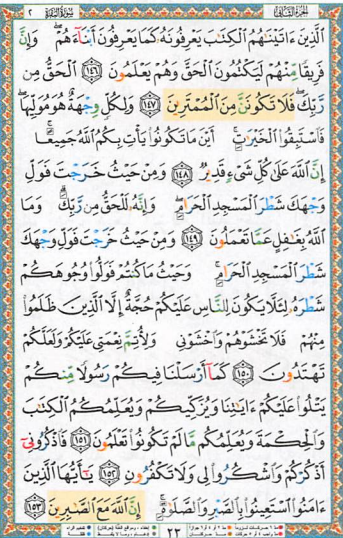 الجزء الثاني سورة البقرة ٢
الَّذِينَ ءَاتَيْنَٰهُمُ الْكِتَٰبَ يَعْرِفُونَهُۥ كَمَا يَعْرِفُونَ أَبْنَآءَهُمْ ۖ وَإِنَّ
فَرِيقًا مِّنْهُمْ لَيَكْتُمُونَ الْحَقَّ وَهُمْ يَعْلَمُونَ ١٤٦ الْحَقُّ مِن
رَّبِّكَ ۖ فَلَا تَكُونَنَّ مِنَ الْمُمْتَرِينَ ١٤٧ وَلِكُلٍّ وِجْهَةٌ هُوَ مُوَلِّيهَا ۖ
فَاسْتَبِقُوا الْخَيْرَٰتِ ۚ أَيْنَ مَا تَكُونُوا يَأْتِ بِكُمُ اللَّهُ جَمِيعًا ۚ
إِنَّ اللَّهَ عَلَىٰ كُلِّ شَىْءٍ قَدِيرٌ ١٤٨ وَمِنْ حَيْثُ خَرَجْتَ فَوَلِّ
وَجْهَكَ شَطْرَ الْمَسْجِدِ الْحَرَامِ ۖ وَإِنَّهُۥ لَلْحَقُّ مِن رَّبِّكَ ۗ وَمَا
اللَّهُ بِغَٰفِلٍ عَمَّا تَعْمَلُونَ ١٤٩ وَمِنْ حَيْثُ خَرَجْتَ فَوَلِّ وَجْهَكَ
شَطْرَ الْمَسْجِدِ الْحَرَامِ ۚ وَحَيْثُ مَا كُنتُمْ فَوَلُّوا وُجُوهَكُمْ
شَطْرَهُۥ لِئَلَّا يَكُونَ لِلنَّاسِ عَلَيْكُمْ حُجَّةٌ إِلَّا الَّذِينَ ظَلَمُوا
مِنْهُمْ فَلَا تَخْشَوْهُمْ وَاخْشَوْنِى وَلِأُتِمَّ نِعْمَتِى عَلَيْكُمْ وَلَعَلَّكُمْ
تَهْتَدُونَ ١٥٠ كَمَآ أَرْسَلْنَا فِيكُمْ رَسُولًا مِّنكُمْ
يَتْلُوا عَلَيْكُمْ ءَايَٰتِنَا وَيُزَكِّيكُمْ وَيُعَلِّمُكُمُ الْكِتَٰبَ
وَالْحِكْمَةَ وَيُعَلِّمُكُم مَّا لَمْ تَكُونُوا تَعْلَمُونَ ١٥١ فَاذْكُرُونِىٓ
أَذْكُرْكُمْ وَاشْكُرُوا لِى وَلَا تَكْفُرُونِ ١٥٢ يَٰٓأَيُّهَا الَّذِينَ
ءَامَنُوا اسْتَعِينُوا بِالصَّبْرِ وَالصَّلَوٰةِ ۚ إِنَّ اللَّهَ مَعَ الصَّٰبِرِينَ ١٥٣
٢٣